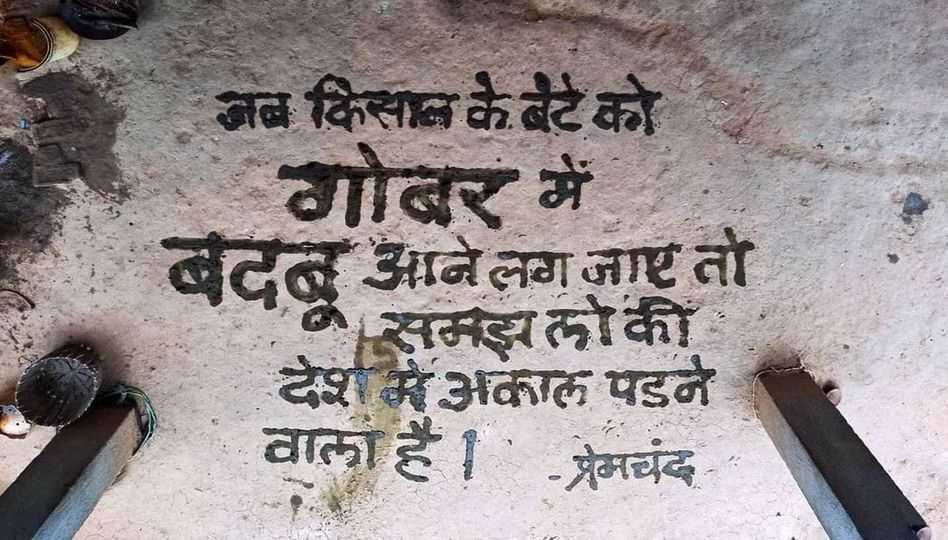 जब किसान के बेटे को
गोबर में
बदबू आने लग जाए तो
समझ लो की
देश मे अकाल पडने
वाला है।
- प्रेमचंद